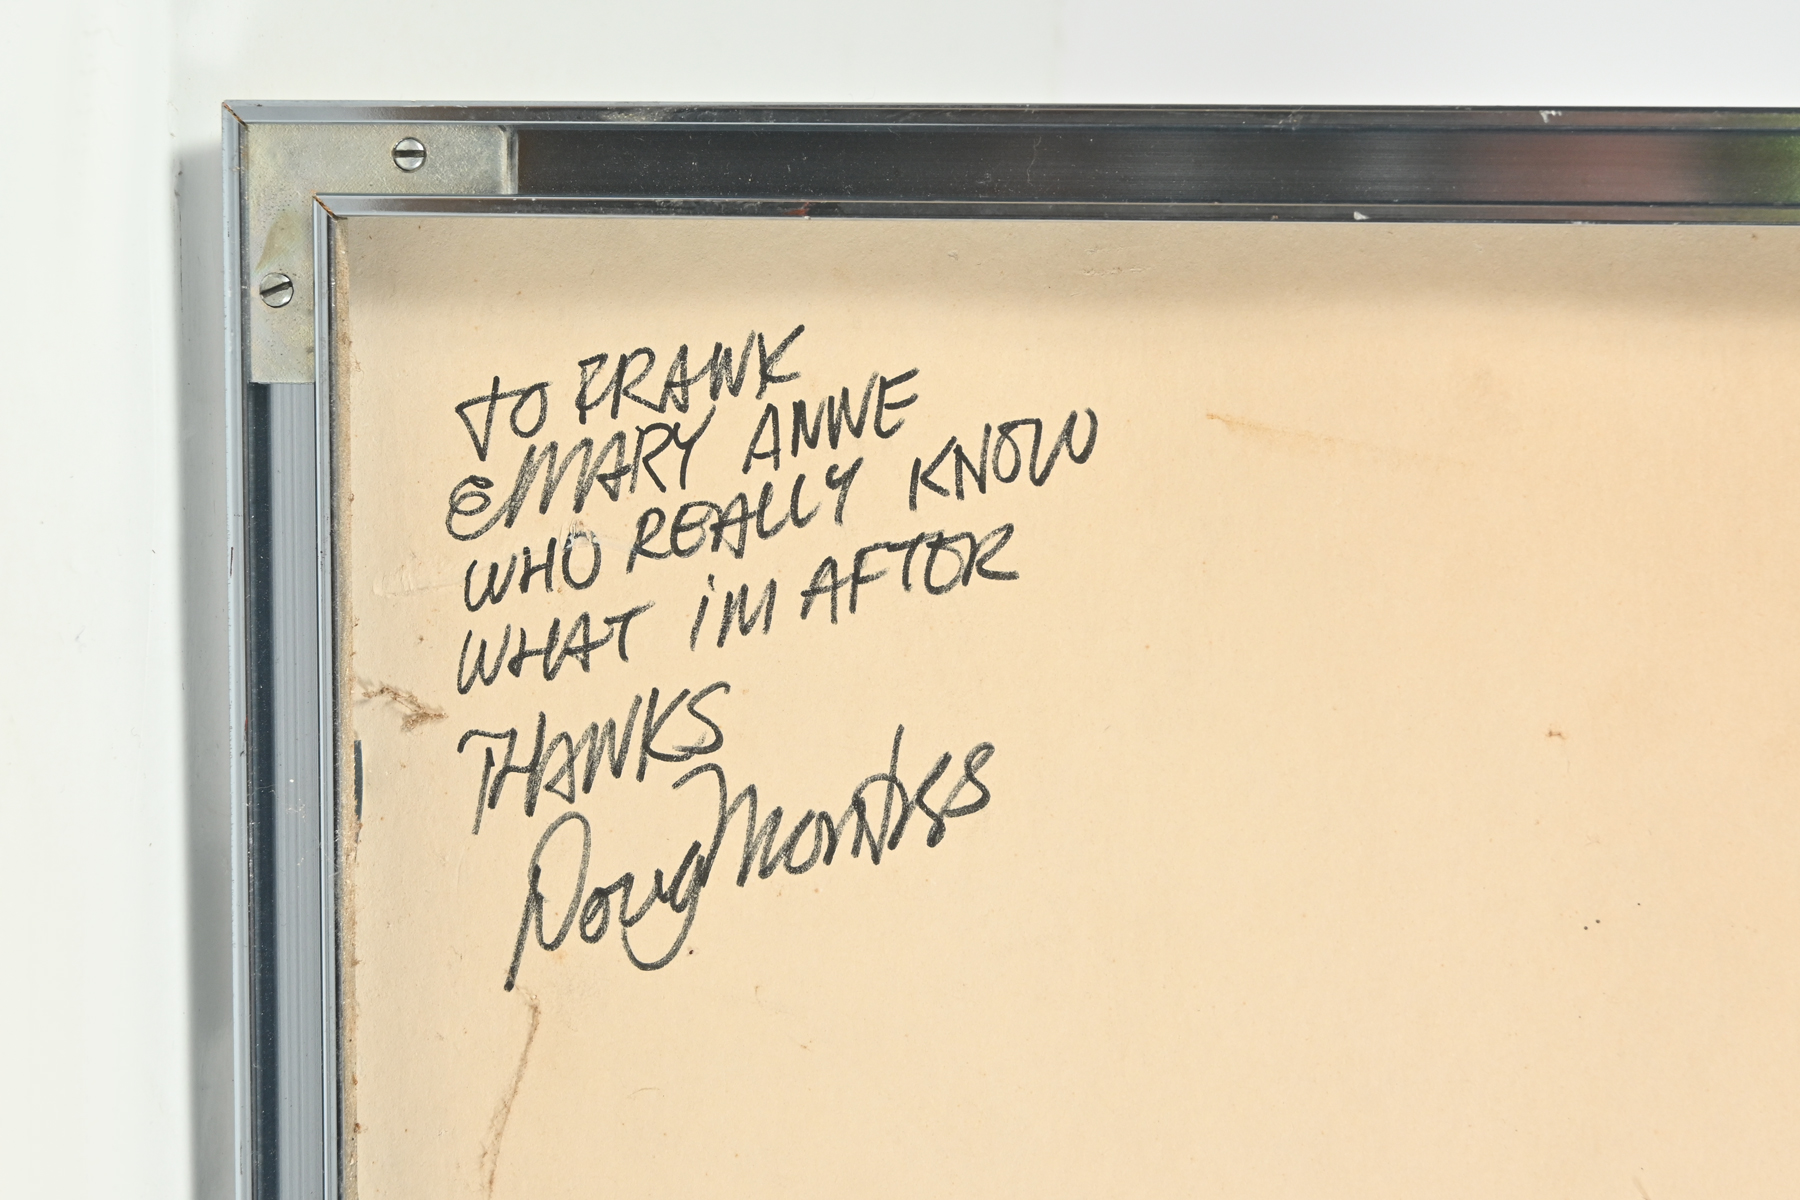 TO FRANK
& MARY ANNE
WHO REALLY KNOW
WHAT iM AFTER
THANKS
Doug